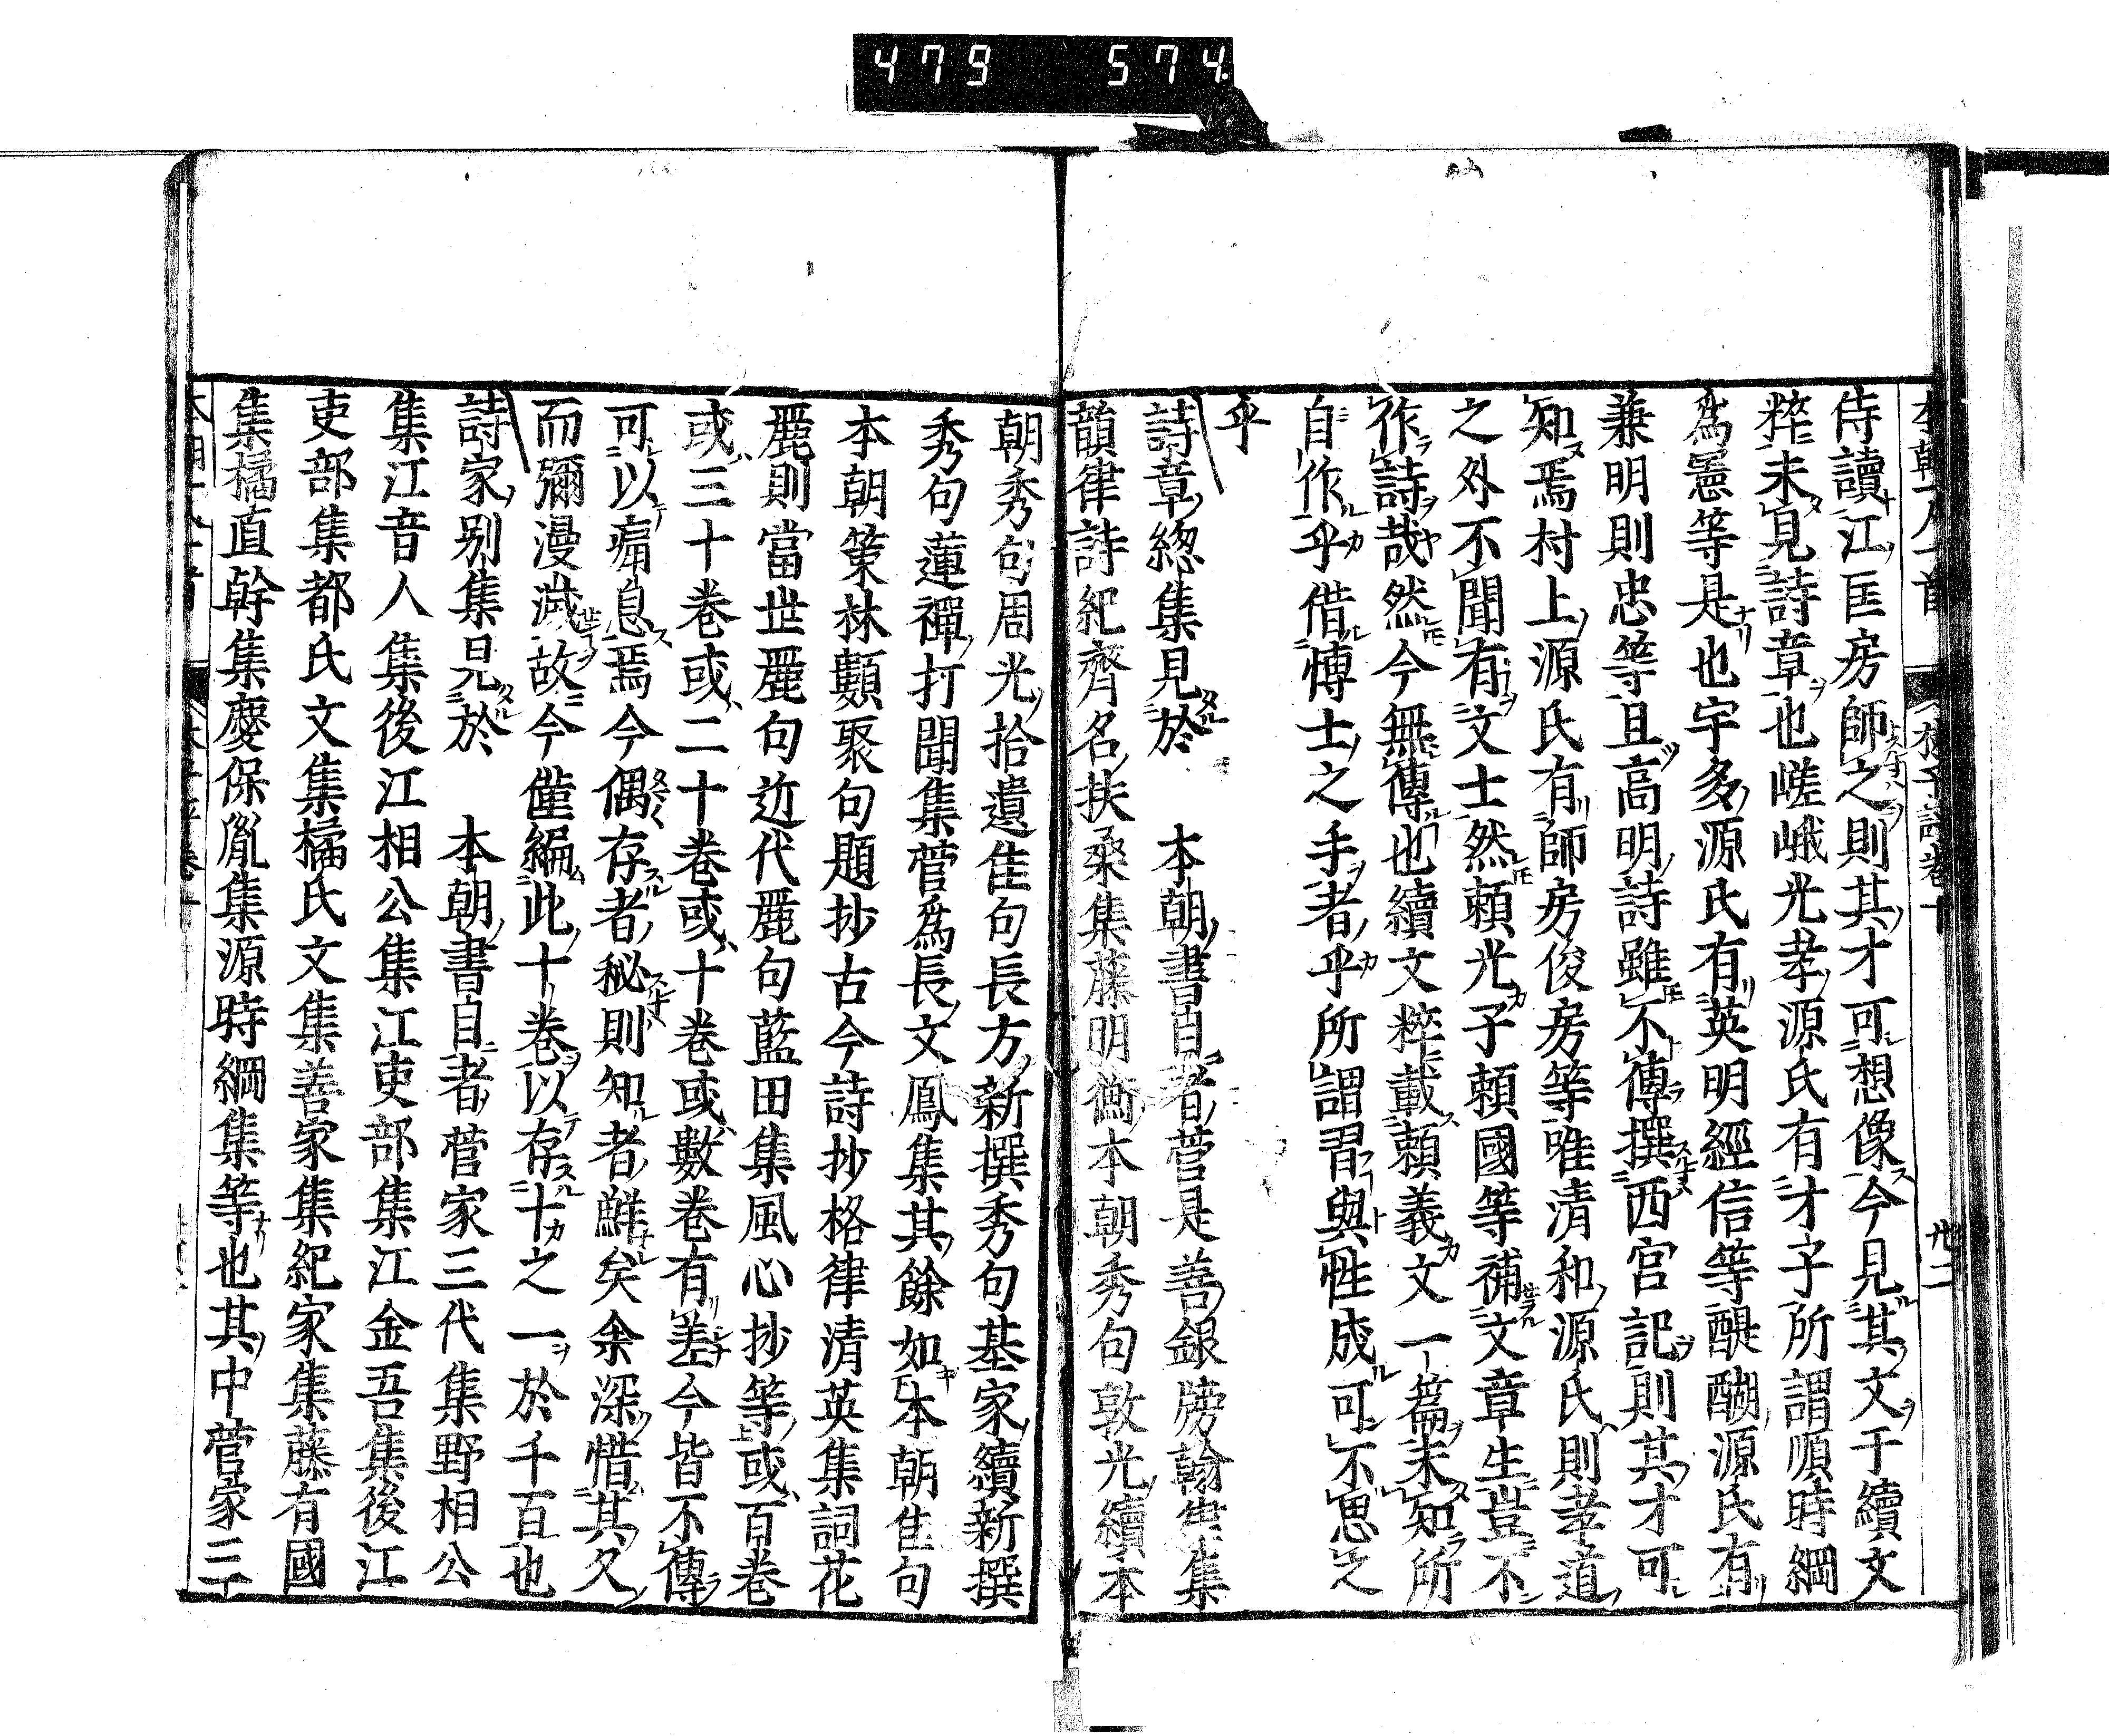 479 574.
本朝一人一首 卷十 卅二
侍讀江匡房師之則其才可想像今見其文于續文
粹未見詩章也嵯峨光孝源氏有才子所謂順時綱
爲憲等是也宇多源氏有英明經信等醍醐源氏有
兼明則忠等且高明詩雖不傳撰西宮記則其才可
知焉村上源氏有師房俊房等唯清和源氏則孝道
之外不聞有文士然賴光子賴國等補文章生豈不
作詩哉然今無傳也續文粹載賴義文一篇未知所
自作乎借博士之手者乎所謂習與性成可不思之
乎
詩章總集見於 本朝書目者菅是善銀牓翰律集
韻律詩紀齊名扶桑集藤明衡本朝秀句敦光續本
朝秀句周光拾遺佳句長方新撰秀句基家續新撰
秀句蓮禪打聞集菅爲長文鳳集其餘如本朝佳句
本朝策林類聚句題抄古今詩抄格律清英集詞花
麗則當世麗句近代麗句藍田集風心抄等或百卷
或三十卷或二十卷或十卷或數卷有差今皆不傳
可以痛息焉今偶存者秘則知者鮮矣余深惜其久
而彌漫滅故今僅編此十卷以存十之一於千百也
詩家別集見於 本朝書目者菅家三代集野相公
集江音人集後江相公集江吏部集江金吾集後江
吏部集都氏文集橘氏文集善家集紀家集藤有國
集橘直幹集慶保胤集源時綱集等也其中菅家三